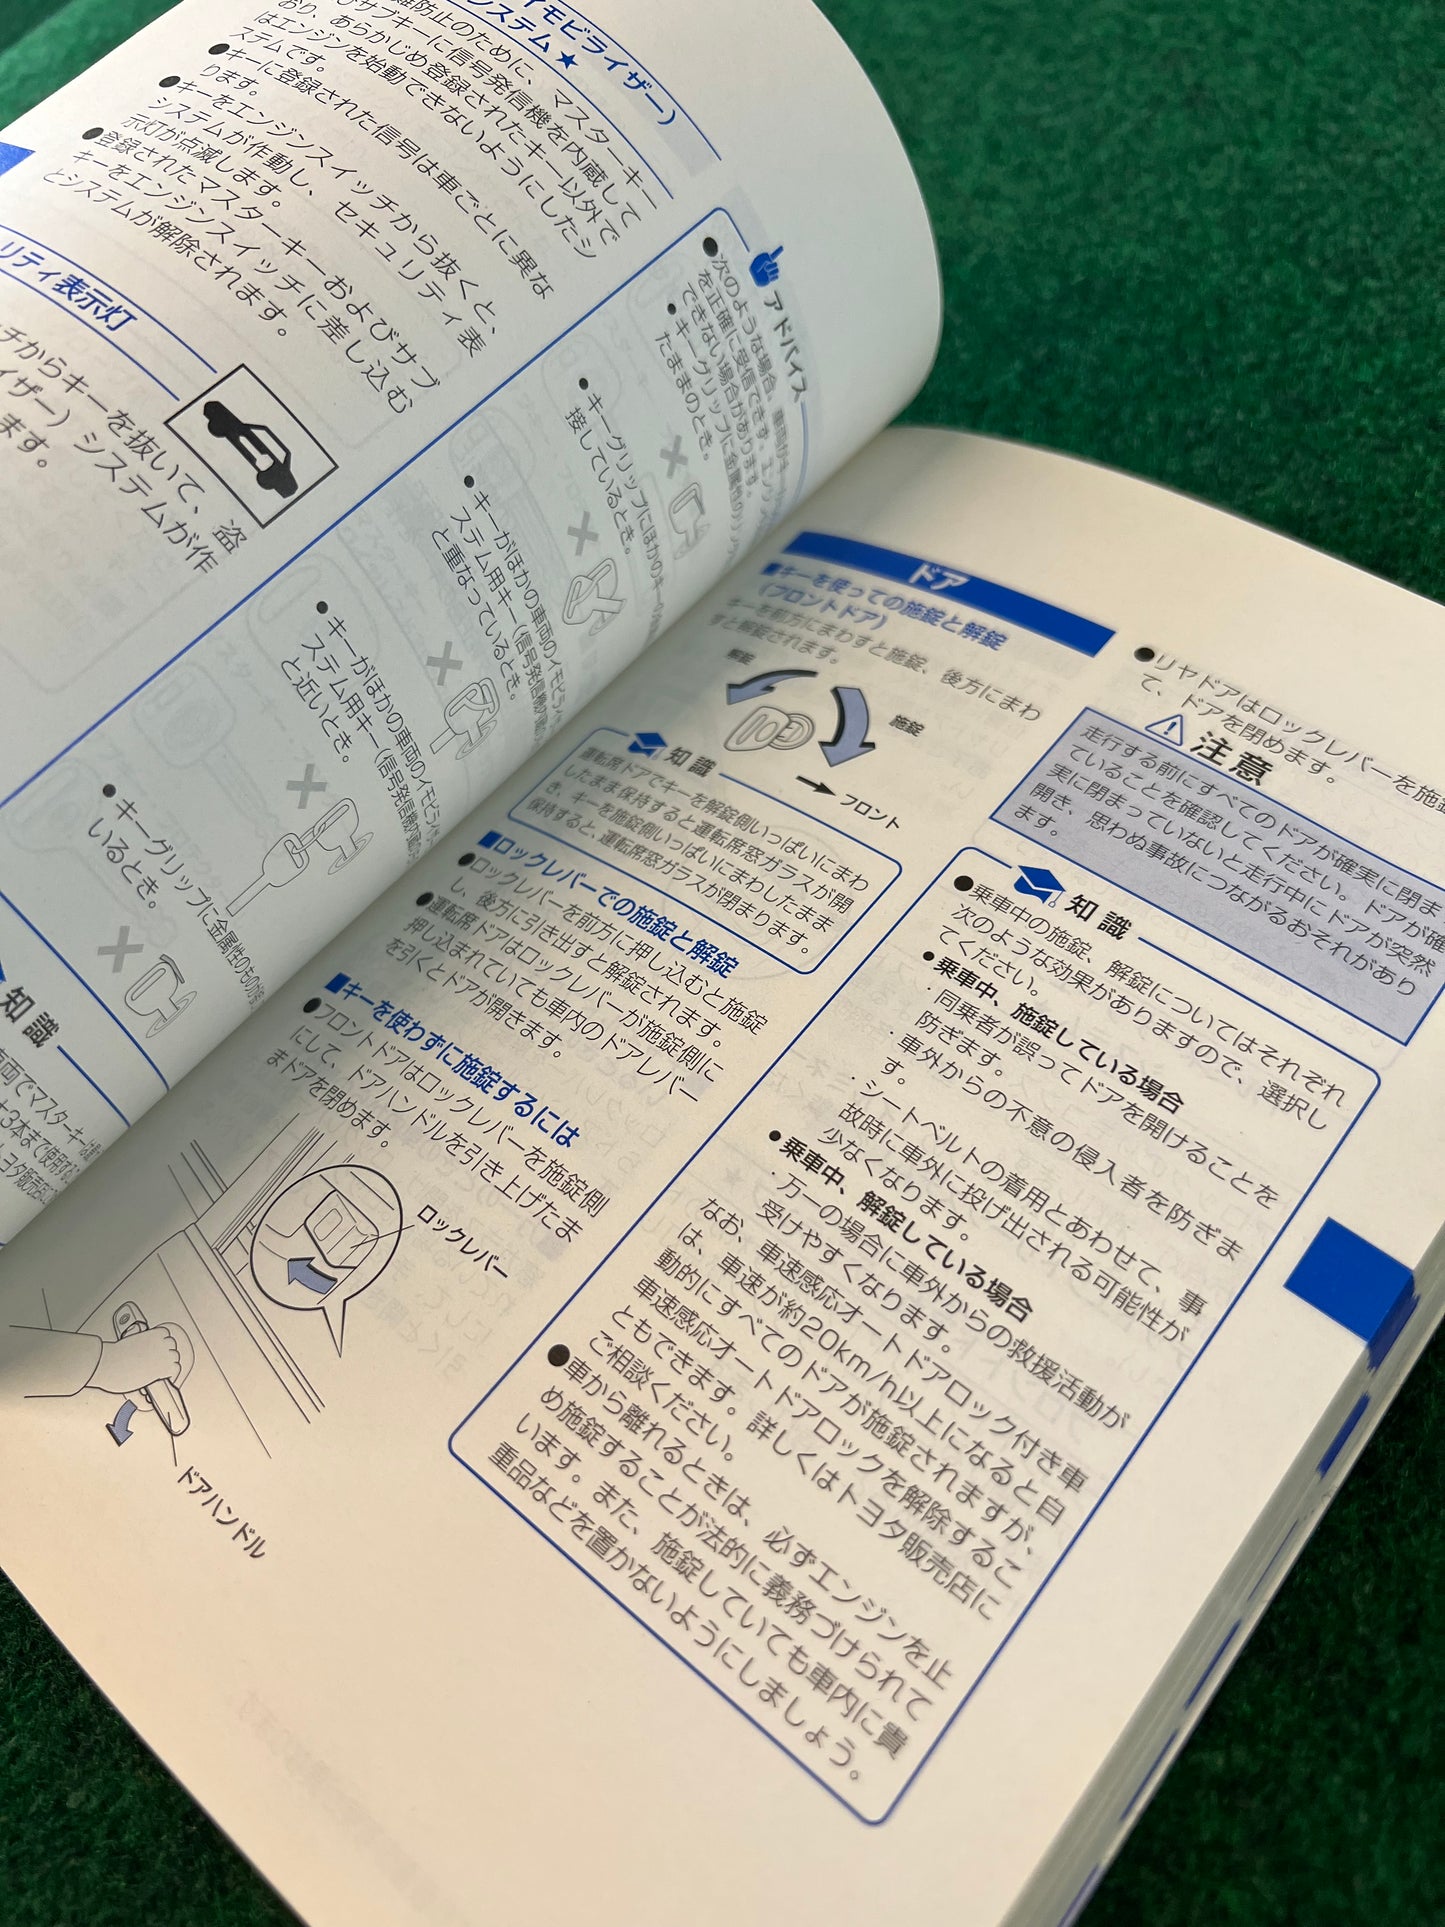 イモビライザー）
システム★
難防止のために、マスターキー
サブキーに信号発信機を内蔵して
おり、あらかじめ登録されたキー以外で
はエンジンを始動できないようにしたシ
ステムです。
●キーに登録された信号は車ごとに異な
ります。
●キーをエンジンスイッチから抜くと、
システムが作動し、セキュリティ表
示灯が点滅します。
●登録されたマスターキーおよびサブ
キーをエンジンスイッチに差し込む
とシステムが解除されます。
リティ表示灯
チからキーを抜いて、盗
イザー）システムが作
ます。
アドバイス
●次のような場合、車両が
を正確に受信できず、エン
できない場合があります。
・キーグリップに金属性の
たままのとき。
・キーグリップにほかのキーの
接しているとき。
・キーがほかの車両のイモビライ
ステム用キー（信号発信機
と重なっているとき。
・キーがほかの車両のイモビライ
ステム用キー（信号発信機
と近いとき。
・キーグリップに金属性のものが
いるとき。
知識
両でマスターキー
3本まで使用する
ヨタ販売店
ドア
■キーを使っての施錠と解錠
（フロントドア）
キーを前方にまわすと施錠、後方にまわ
すと解錠されます。
解錠
施錠
フロント
知識
運転席ドアでキーを解錠側いっぱいにまわ
したまま保持すると運転席窓ガラスが開
き、キーを施錠側いっぱいにまわしたまま
保持すると、運転席窓ガラスが閉まります。
■ロックレバーでの施錠と解錠
●ロックレバーを前方に押し込むと施錠
し、後方に引き出すと解錠されます。
●運転席ドアはロックレバーが施錠側に
押し込まれていても車内のドアレバー
を引くとドアが開きます。
■キーを使わずに施錠するには
●フロントドアはロックレバーを施錠側
にして、ドアハンドルを引き上げたま
まドアを閉めます。
ロックレバー
ドアハンドル
●リヤドアはロックレバーを施錠
て、ドアを閉めます。
注意
走行する前にすべてのドアが確実に閉ま
っていることを確認してください。ドアが確
実に閉まっていないと走行中にドアが突然
開き、思わぬ事故につながるおそれがあり
ます。
知識
●乗車中の施錠、解錠についてはそれぞれ
次のような効果がありますので、選択し
てください。
・乗車中、施錠している場合
・同乗者が誤ってドアを開けることを
防ぎます。
・車外からの不意の侵入者を防ぎま
す。
・シートベルトの着用とあわせて、事
故時に車外に投げ出される可能性が
少なくなります。
・乗車中、解錠している場合
・万一の場合に車外からの救援活動が
受けやすくなります。
なお、車速感応オートドアロック付き車
は、車速が約20km/h以上になると自
動的にすべてのドアが施錠されますが、
車速感応オートドアロックを解除するこ
ともできます。詳しくはトヨタ販売店に
ご相談ください。
●車から離れるときは、必ずエンジンを止
め施錠することが法的に義務づけられて
います。また、施錠していても車内に貴
重品などを置かないようにしましょう。